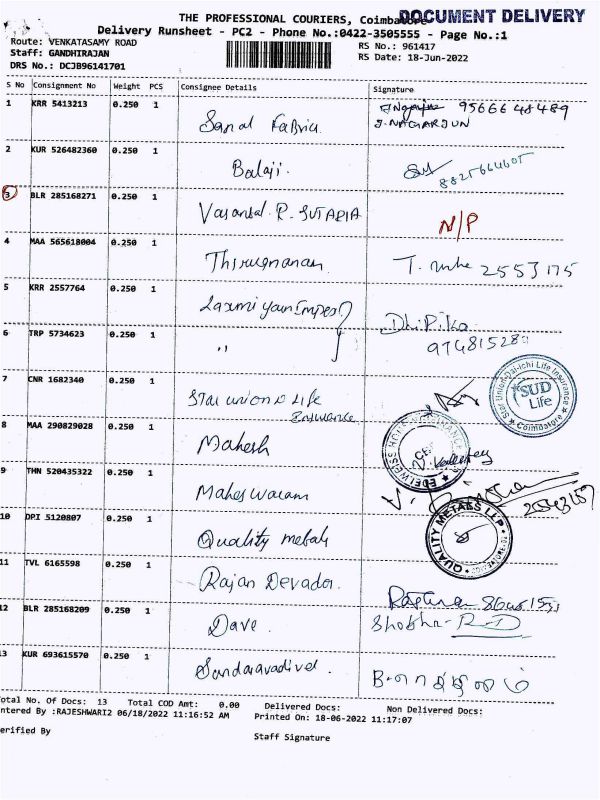 THE PROFESSIONAL COURIERS, Coimbatore DOCUMENT DELIVERY
Delivery Runsheet - PC2 - Phone No.:0422-3505555 - Page No.:1
Route: VENKATASAMY ROAD
Staff: GANDHIRAJAN
DRS No.: DCJB96141701
RS No.: 961417
RS Date: 18-Jun-2022
S No Consignment No Weight PCS Consignee Details Signature
1 KRR 5413213 0.250 1 Sanal Fabric 9566648489
S. NAGARJUN
2 KUR 526482360 0.250 1 Balaji. 8825664605
3 BLR 285168271 0.250 1 Vasantal. R. SUTARIA N/P
4 MAA 565618004 0.250 1 Thirugnanam T. 2553175
5 KRR 2557764 0.250 1 Laxmi
Dhipika
6 TRP 5734623 0.250 1 ,,
7 CNR 1682340 0.250 1 Star union D Life
Insurance
Star Union Dai-ichi Life Insurance
SUD
Life
Coimbatore
8 MAA 290829028 0.250 1 Mahesh
EDELWEISS
9 THN 520435322 0.250 1 Maheswaram
10 DPI 5120807 0.250 1 Quality metals
QUALITY METALS LLP
11 TVL 6165598 0.250 1 Rajan Devador.
12 BLR 285168209 0.250 1 Dave. Shobha
13 KUR 693615570 0.250 1 Sundaravadivel.
Total No. Of Docs: 13 Total COD Amt: 0.00 Delivered Docs: Non Delivered Docs:
ntered By :RAJESHWARI2 06/18/2022 11:16:52 AM Printed On: 18-06-2022 11:17:07
erified By
Staff Signature